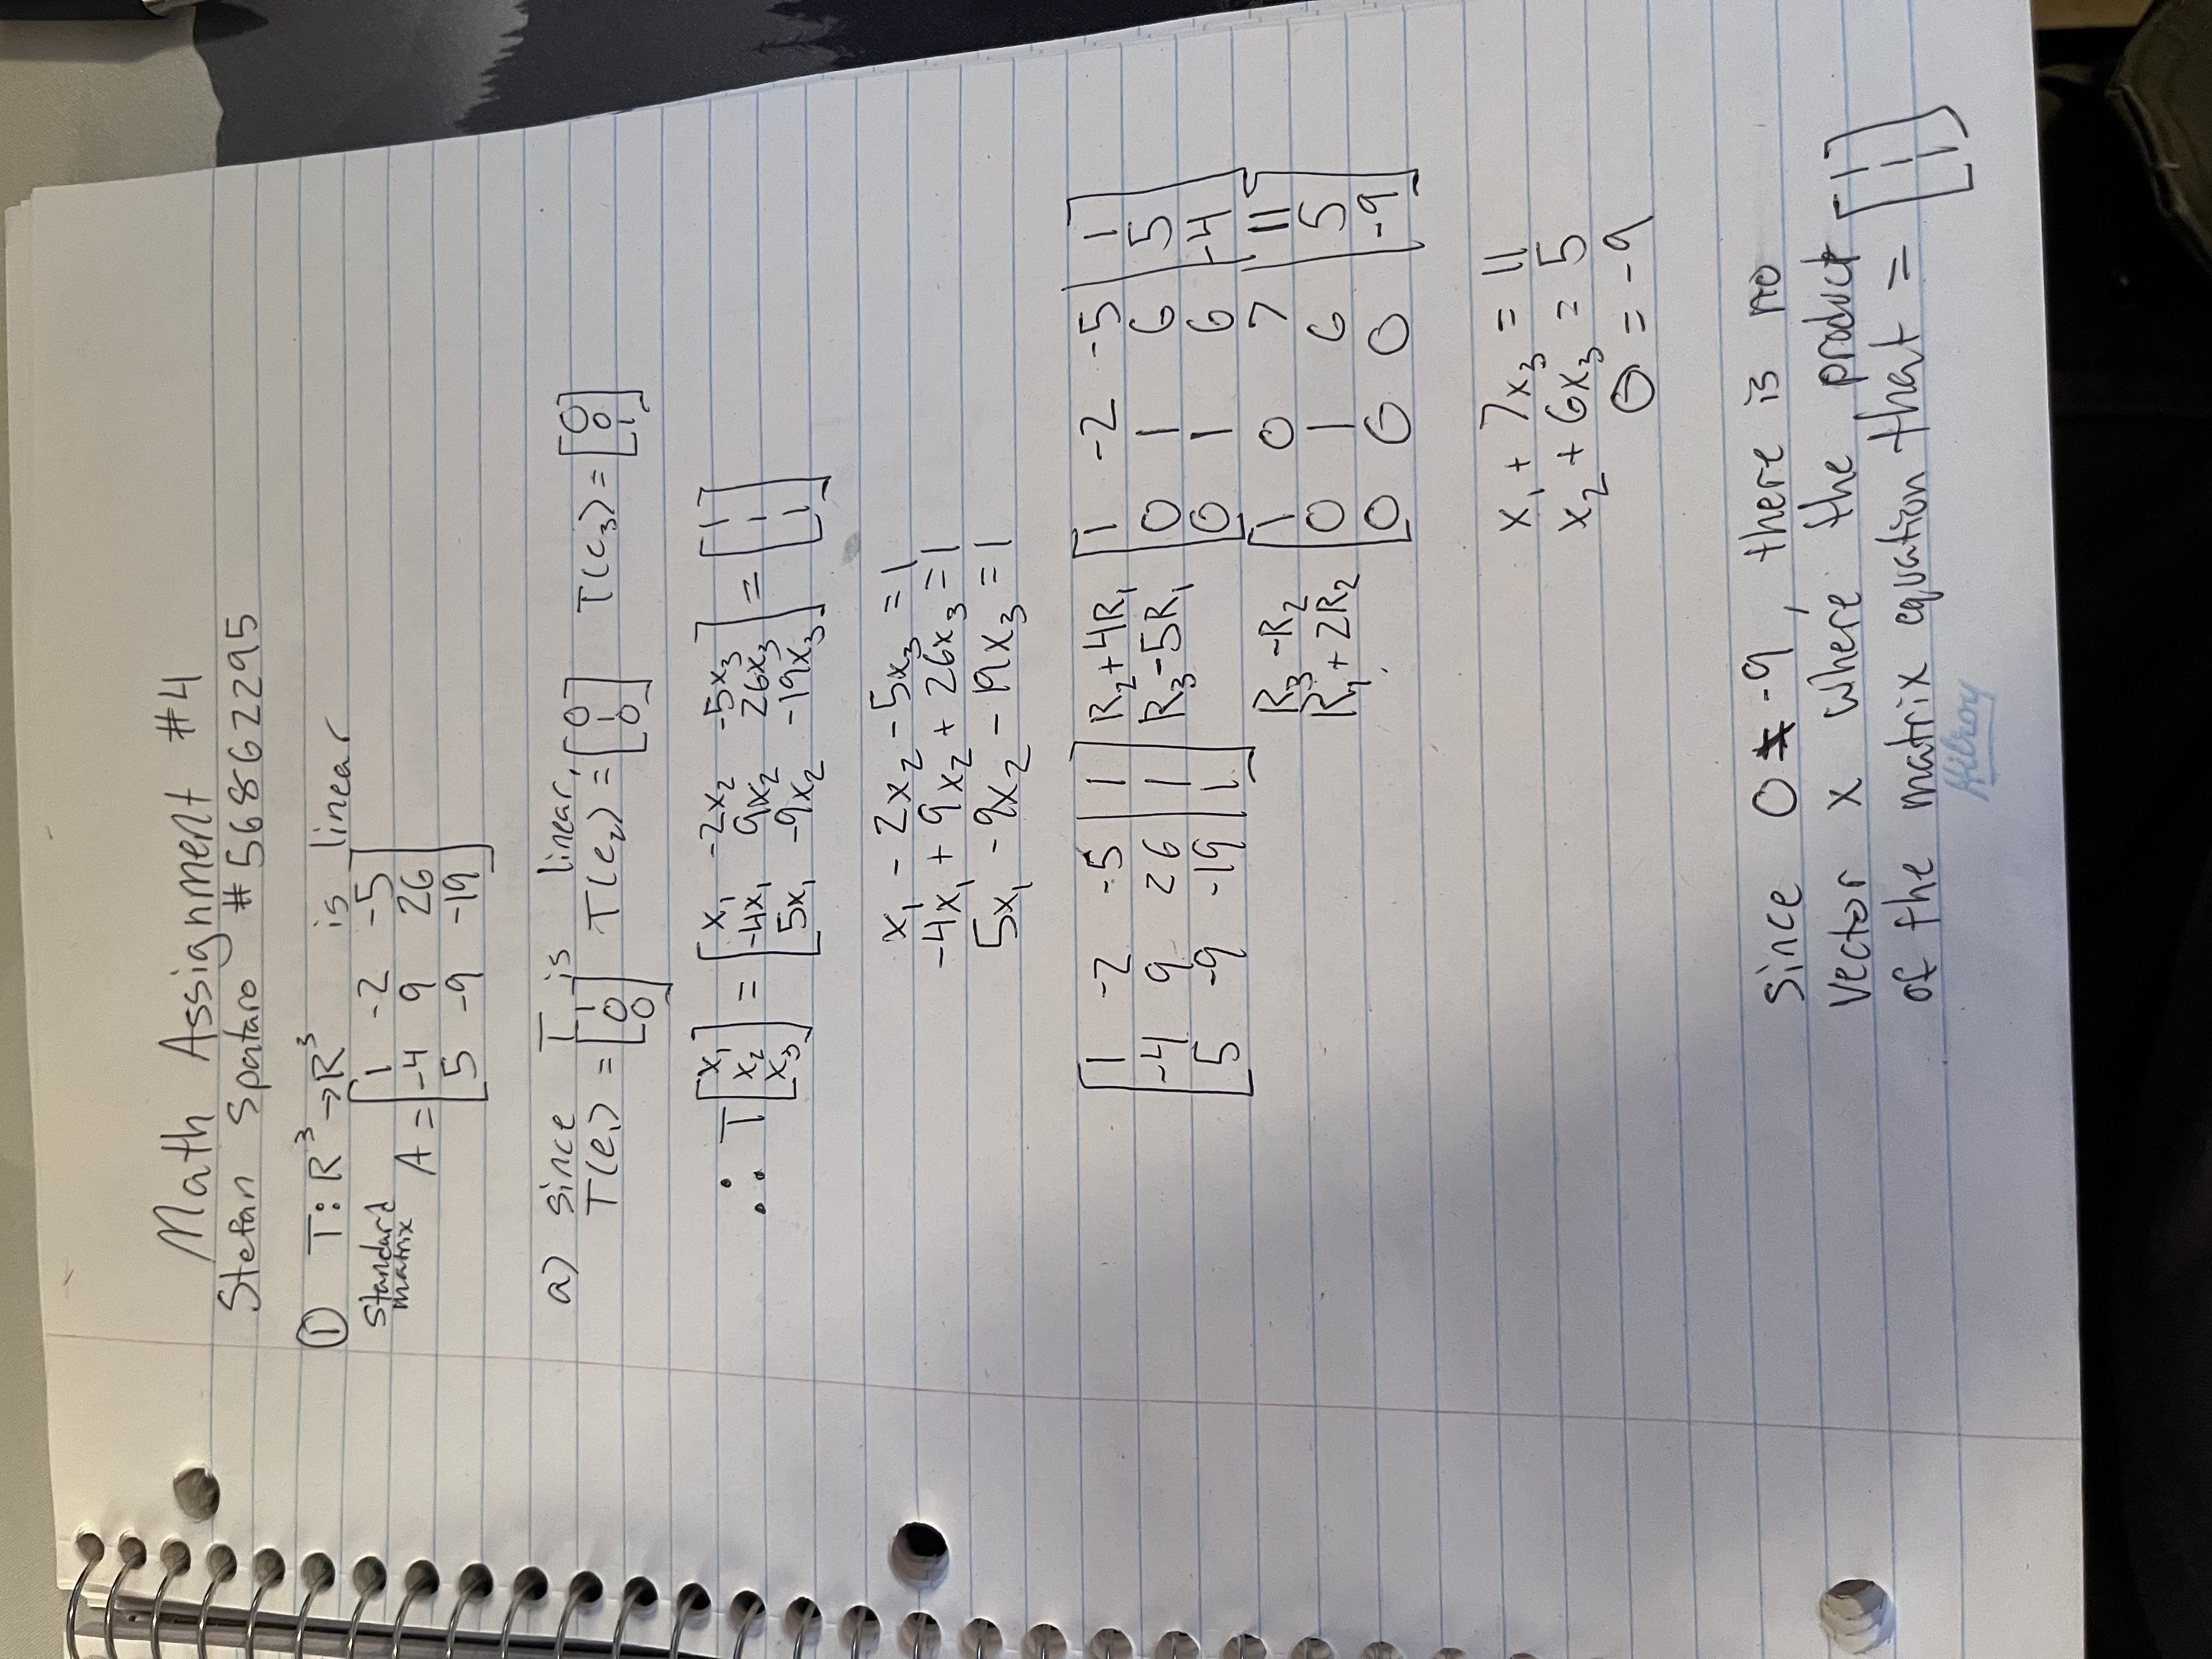 Math Assignment #4
Stefan Spataro #56862295
① T: R³→R³ is linear
Standard matrix
A = [1 -2 -5
-4 9 26
5 -9 -19]
a) since T is linear,
T(e₁) = [1 0 0] T(e₂) = [0 1 0] T(e₃) = [0 0 1]
∴ T[x₁ x₂ x₃] = [x₁ -2x₂ -5x₃
-4x₁ 9x₂ 26x₃
5x₁ -9x₂ -19x₃] = [1 1 1]
x₁ - 2x₂ - 5x₃ = 1
-4x₁ + 9x₂ + 26x₃ = 1
5x₁ - 9x₂ - 19x₃ = 1
[1 -2 -5 | 1] R₂+4R₁ [1 -2 -5 | 1]
[-4 9 26 | 1] R₃-5R₁ [0 1 6 | 5]
[5 -9 -19 | 1] [0 1 6 | -4]
R₃-R₂ [1 0 7 | 11]
R₁+2R₂ [0 1 6 | 5]
[0 0 0 | -9]
x₁ + 7x₃ = 11
x₂ + 6x₃ = 5
0 = -9
since 0 ≠ -9, there is no
vector x where the product
of the matrix equation that = [1 1 1]
Hilroy